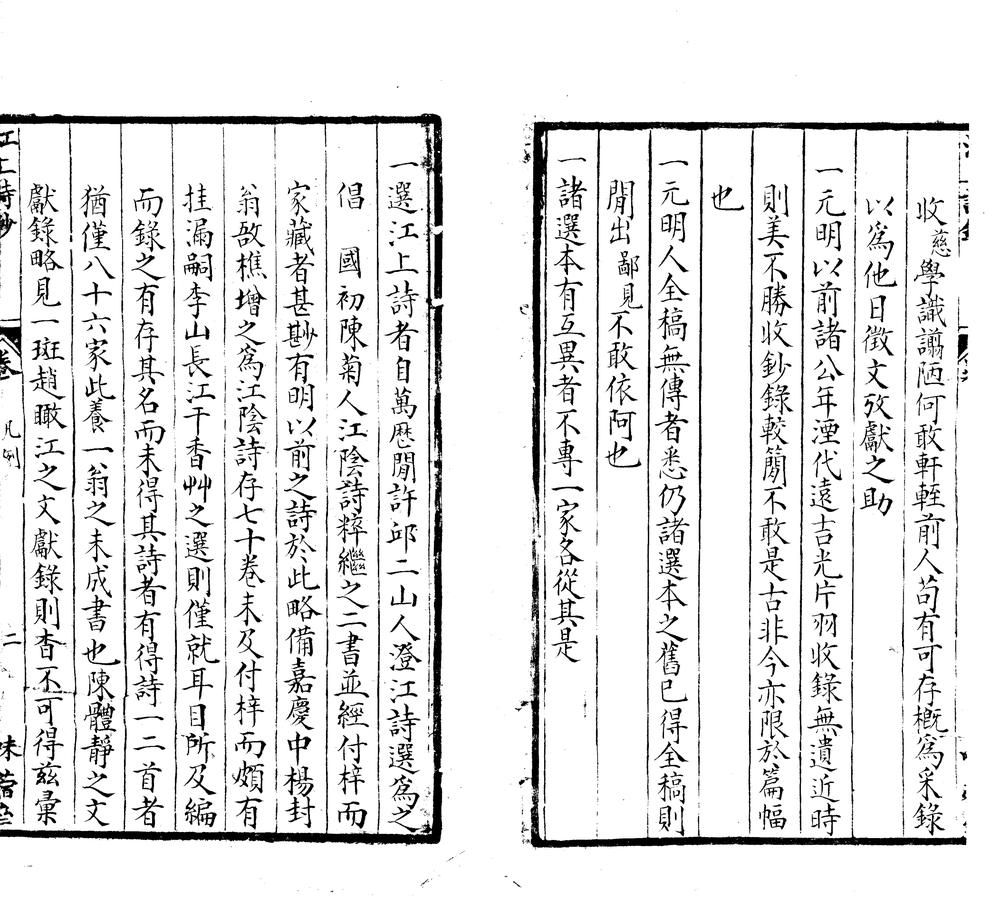 收慈學識譾陋何敢軒輊前人苟有可存概爲采錄
以爲他日徵文攷獻之助
一元明以前諸公年湮代遠吉光片羽收錄無遺近時
則美不勝收鈔錄較簡不敢是古非今亦限於篇幅
也
一元明人全稿無傳者悉仍諸選本之舊已得全稿則
閒出鄙見不敢依阿也
一諸選本有互異者不專一家各從其是
一選江上詩者自萬厯閒許邱二山人澄江詩選爲之
倡　國初陳菊人江陰詩粹繼之二書並經付梓而
家藏者甚尠有明以前之詩於此略備嘉慶中楊封
翁敔樵增之爲江陰詩存七十卷未及付梓而頗有
挂漏嗣李山長江干香艸之選則僅就耳目所及編
而錄之有存其名而未得其詩者有得詩一二首者
猶僅八十六家此養一翁之未成書也陳體靜之文
獻錄略見一斑趙瞰江之文獻錄則杳不可得茲彙
江上詩鈔
卷
凡例
二